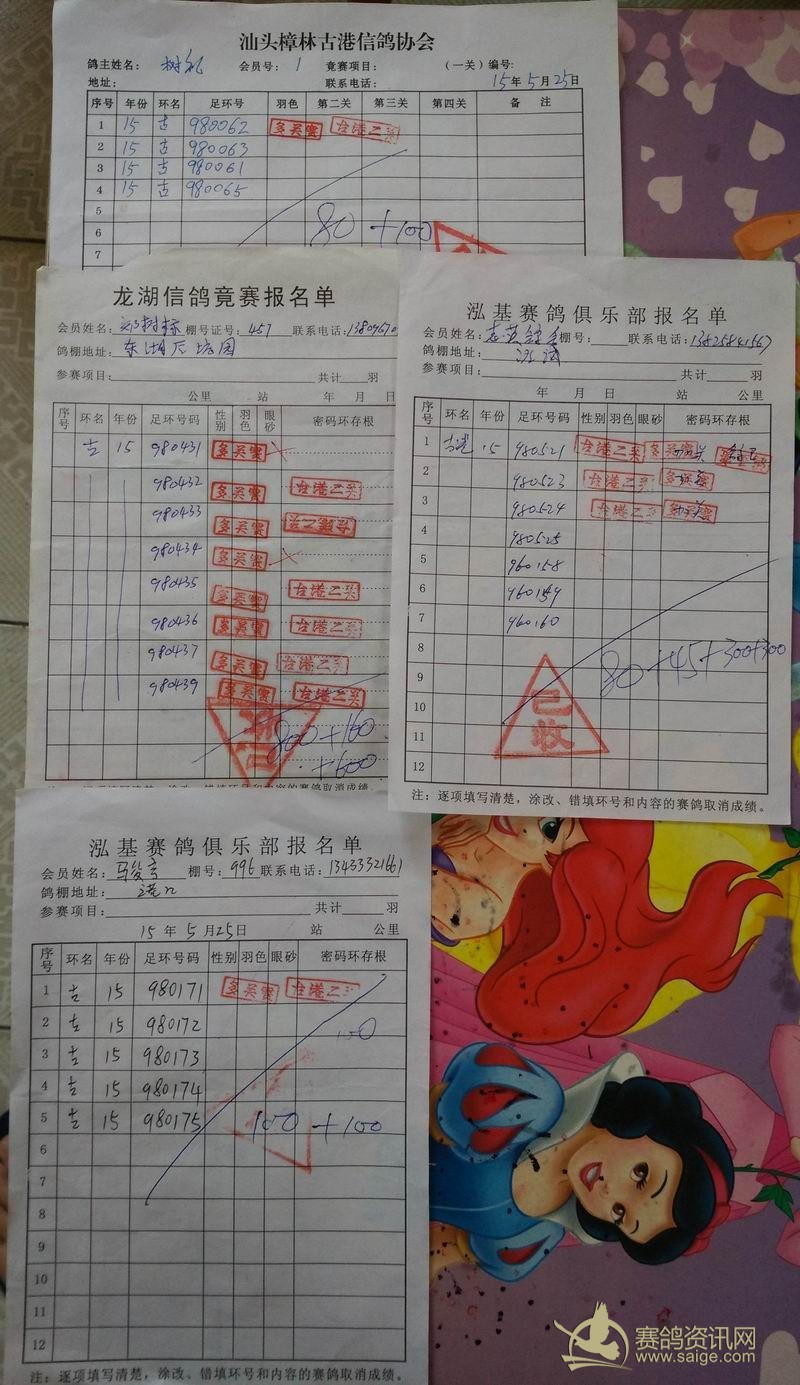 汕头樟林古港信鸽协会
鸽主姓名: 会员号: 1 竟赛项目: (一关)编号:
地址: 联系电话: 15年5月25日
序号 年份 环名 足环号 羽色 第二关 第三关 第四关 备 注
1 15 古 980062 多关赛
2 15 古 980063
3 15 古 980061
4 15 古 980065
5
6 80+100
7
龙湖信鸽竟赛报名单
会员姓名: 棚号证号: 457 联系电话:
鸽棚地址:
参赛项目: 共计 羽
公里 站 年 月 日
序号 环名 年份 足环号码 性别 羽色 眼砂 密码环存根
古 15 980431 多关赛
980432 多关赛
980433 多关赛
980434 多关赛
980435 多关赛
980436 多关赛
980437 多关赛
980439 多关赛
800+160
+600
泓基赛鸽俱乐部报名单
会员姓名: 棚号: 联系电话: 13825841567
鸽棚地址:
参赛项目: 共计 羽
年 月 日 站 公里
序号 环名 年份 足环号码 性别 羽色 眼砂 密码环存根
1 古港 15 980521
2 980523
3 980524
4 980525
5 960158
6 960159
7 960160
8 80+45+300+300
9
10
11
12
已收
注:逐项填写清楚,涂改、错填环号和内容的赛鸽取消成绩。
泓基赛鸽俱乐部报名单
会员姓名: 棚号: 996 联系电话: 13433321661
鸽棚地址: 港口
参赛项目: 共计 羽
15年5月25日 站 公里
序号 环名 年份 足环号码 性别 羽色 眼砂 密码环存根
1 古 15 980171 多关赛
2 古 15 980172
3 古 15 980173
4 古 15 980174
5 古 15 980175 100+100
6
7
8
9
10
11
12
注:逐项填写清楚,涂改、错填环号和内容的赛鸽取消成绩。
赛鸽资讯网
www.saige.com